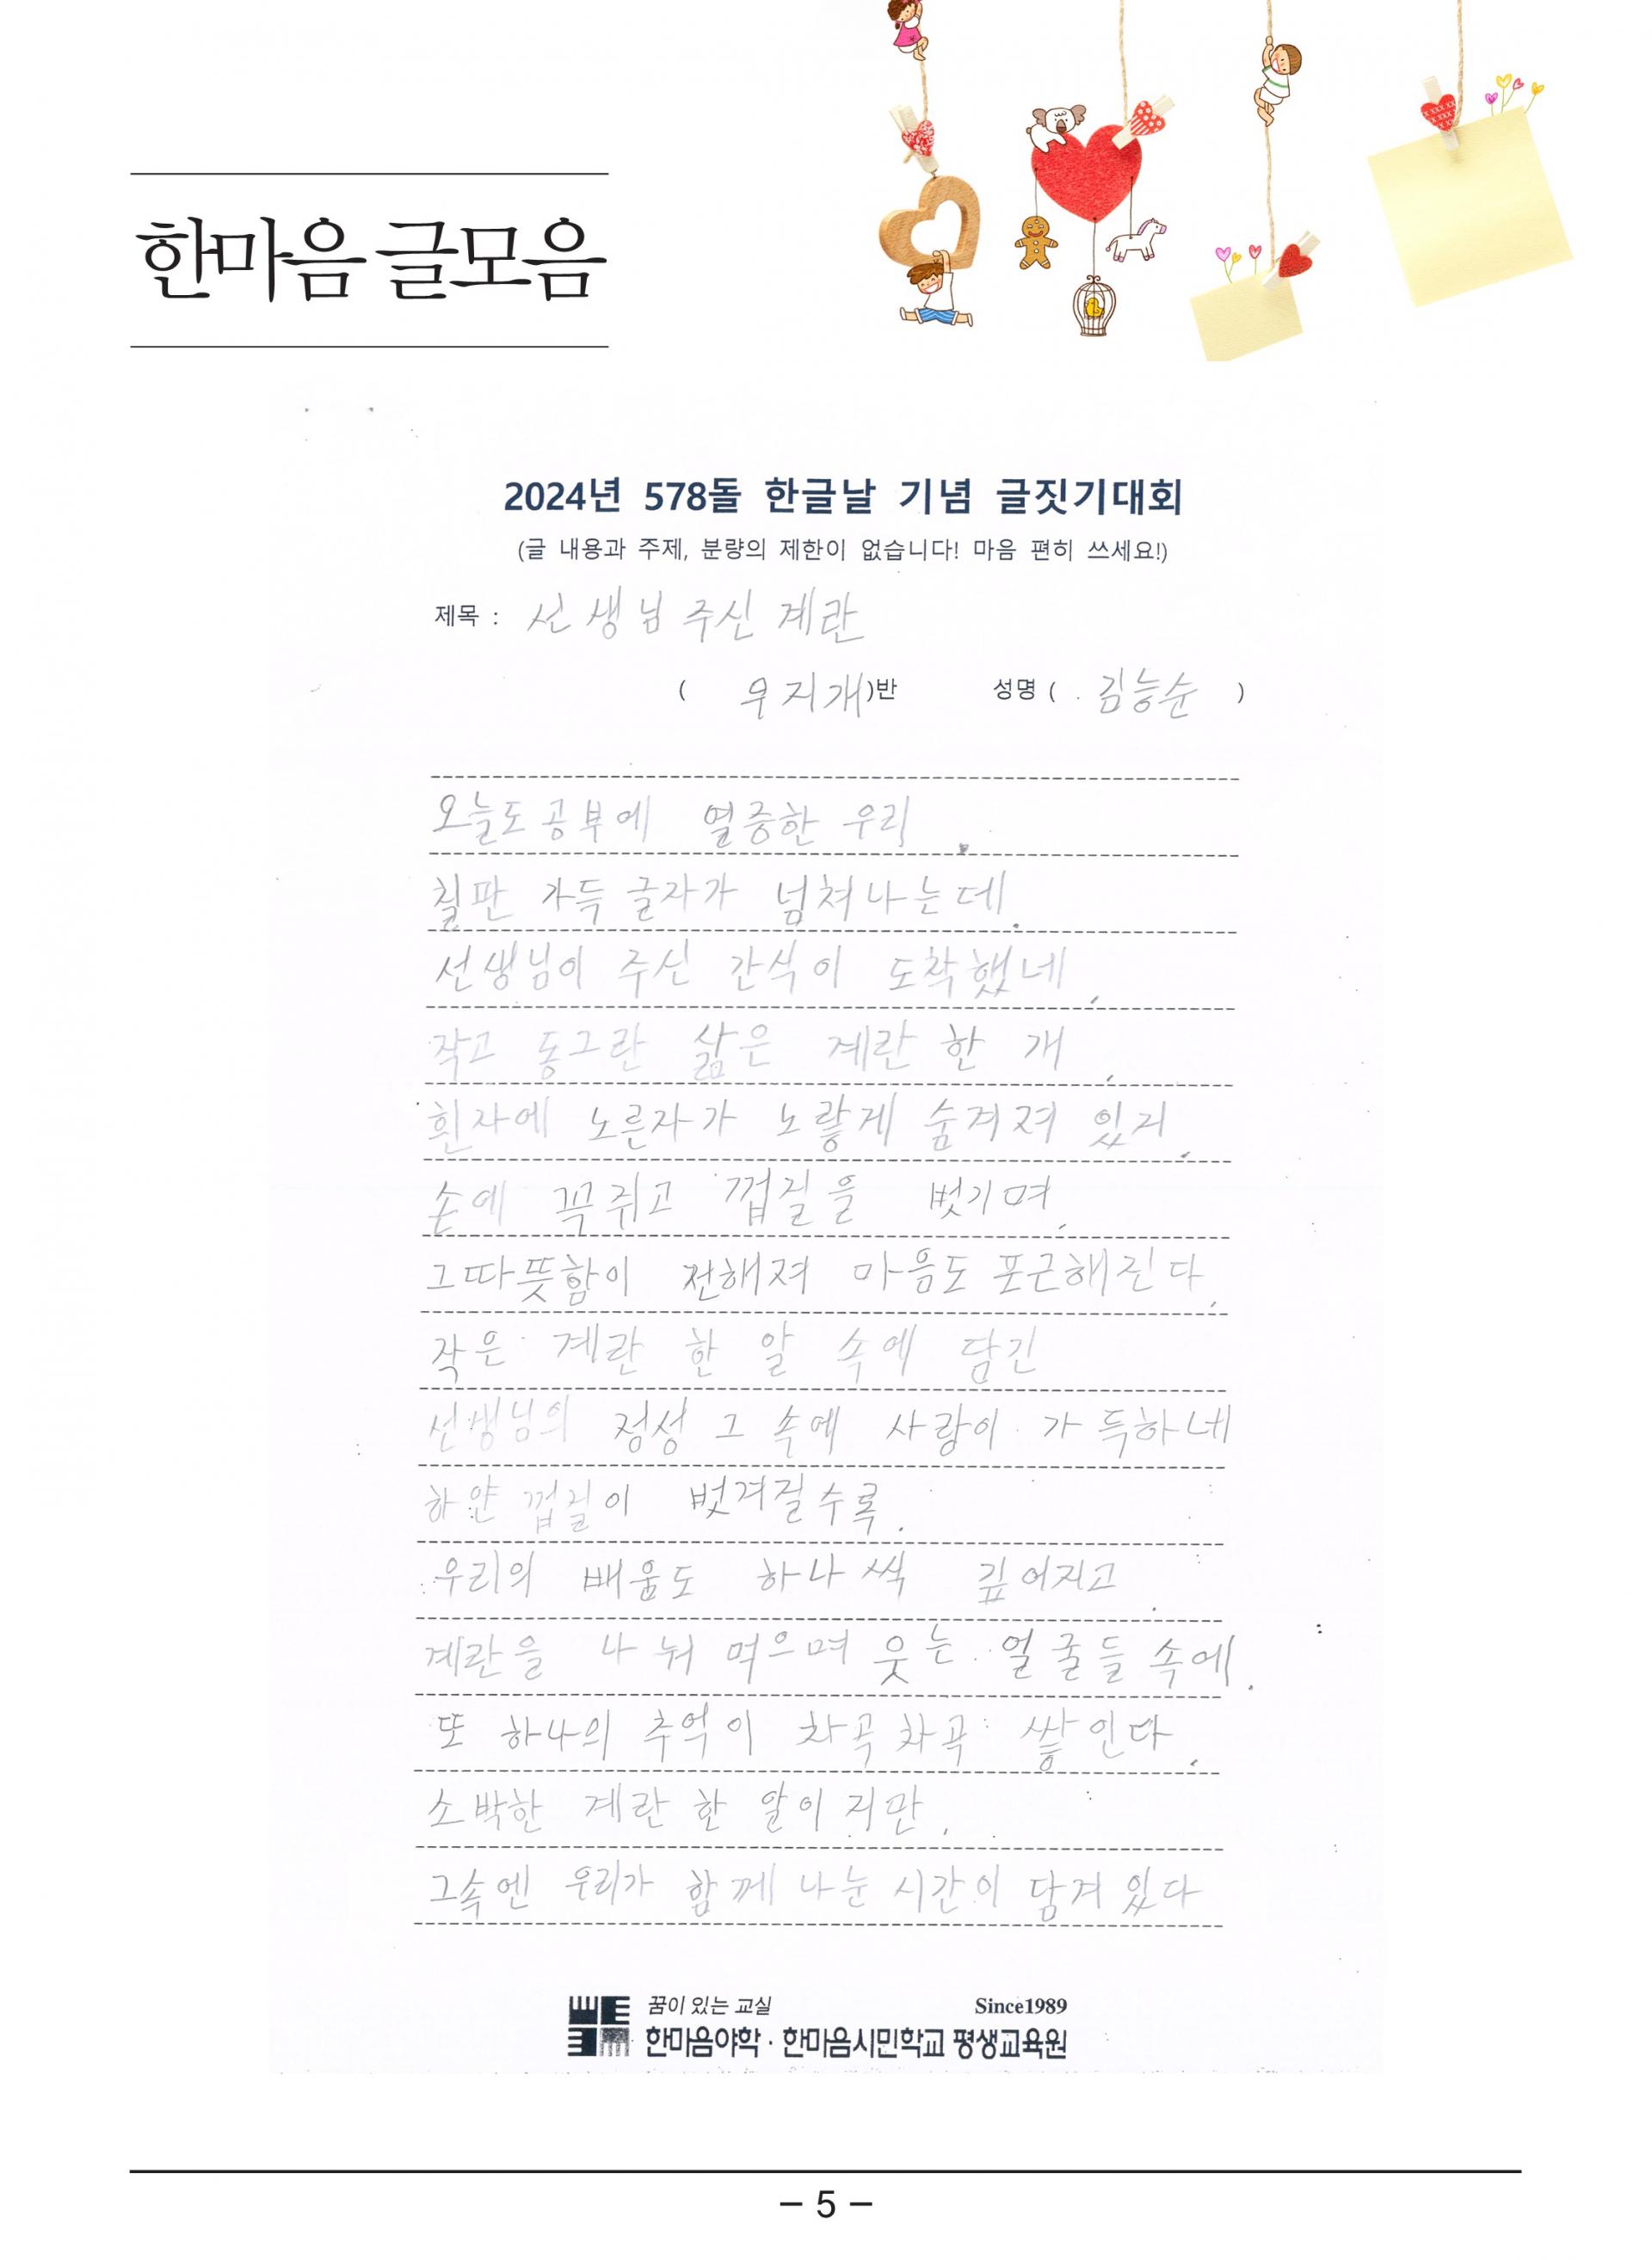 한마음 글모음
2024년 578돌 한글날 기념 글짓기대회
(글 내용과 주제, 분량의 제한이 없습니다! 마음 편히 쓰세요!)
제목 : 선생님 주신 계란
( 무지개)반 성명 ( 김능순 )
오늘도 공부에 열중한 우리
칠판 가득 글자가 넘쳐나는데
선생님이 주신 간식이 도착했네
작고 동그란 삶은 계란 한 개
흰자에 노른자가 노랗게 숨겨져 있지
손에 꼭 쥐고 껍질을 벗기며
그따뜻함이 전해져 마음도 포근해진다
작은 계란 한 알 속에 담긴
선생님의 정성 그 속에 사랑이 가득하네
하얀 껍질이 벗겨질수록
우리의 배움도 하나씩 깊어지고
계란을 나눠 먹으며 웃는 얼굴들 속에
또 하나의 추억이 차곡차곡 쌓인다
소박한 계란 한 알이지만
그속엔 우리가 함께 나눈 시간이 담겨 있다
꿈이 있는 교실 Since1989
한마음야학 · 한마음시민학교 평생교육원
– 5 –